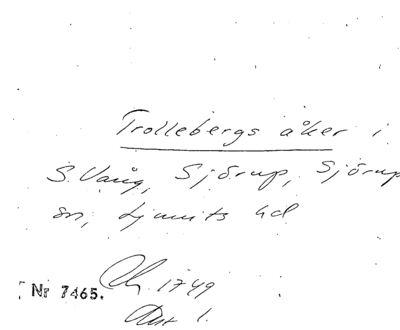 Trollebergs åker i
S. Vång, Sjörup, Sjörup
sn, Ljunits hd
1749
Nr 7465.
Akt 1.